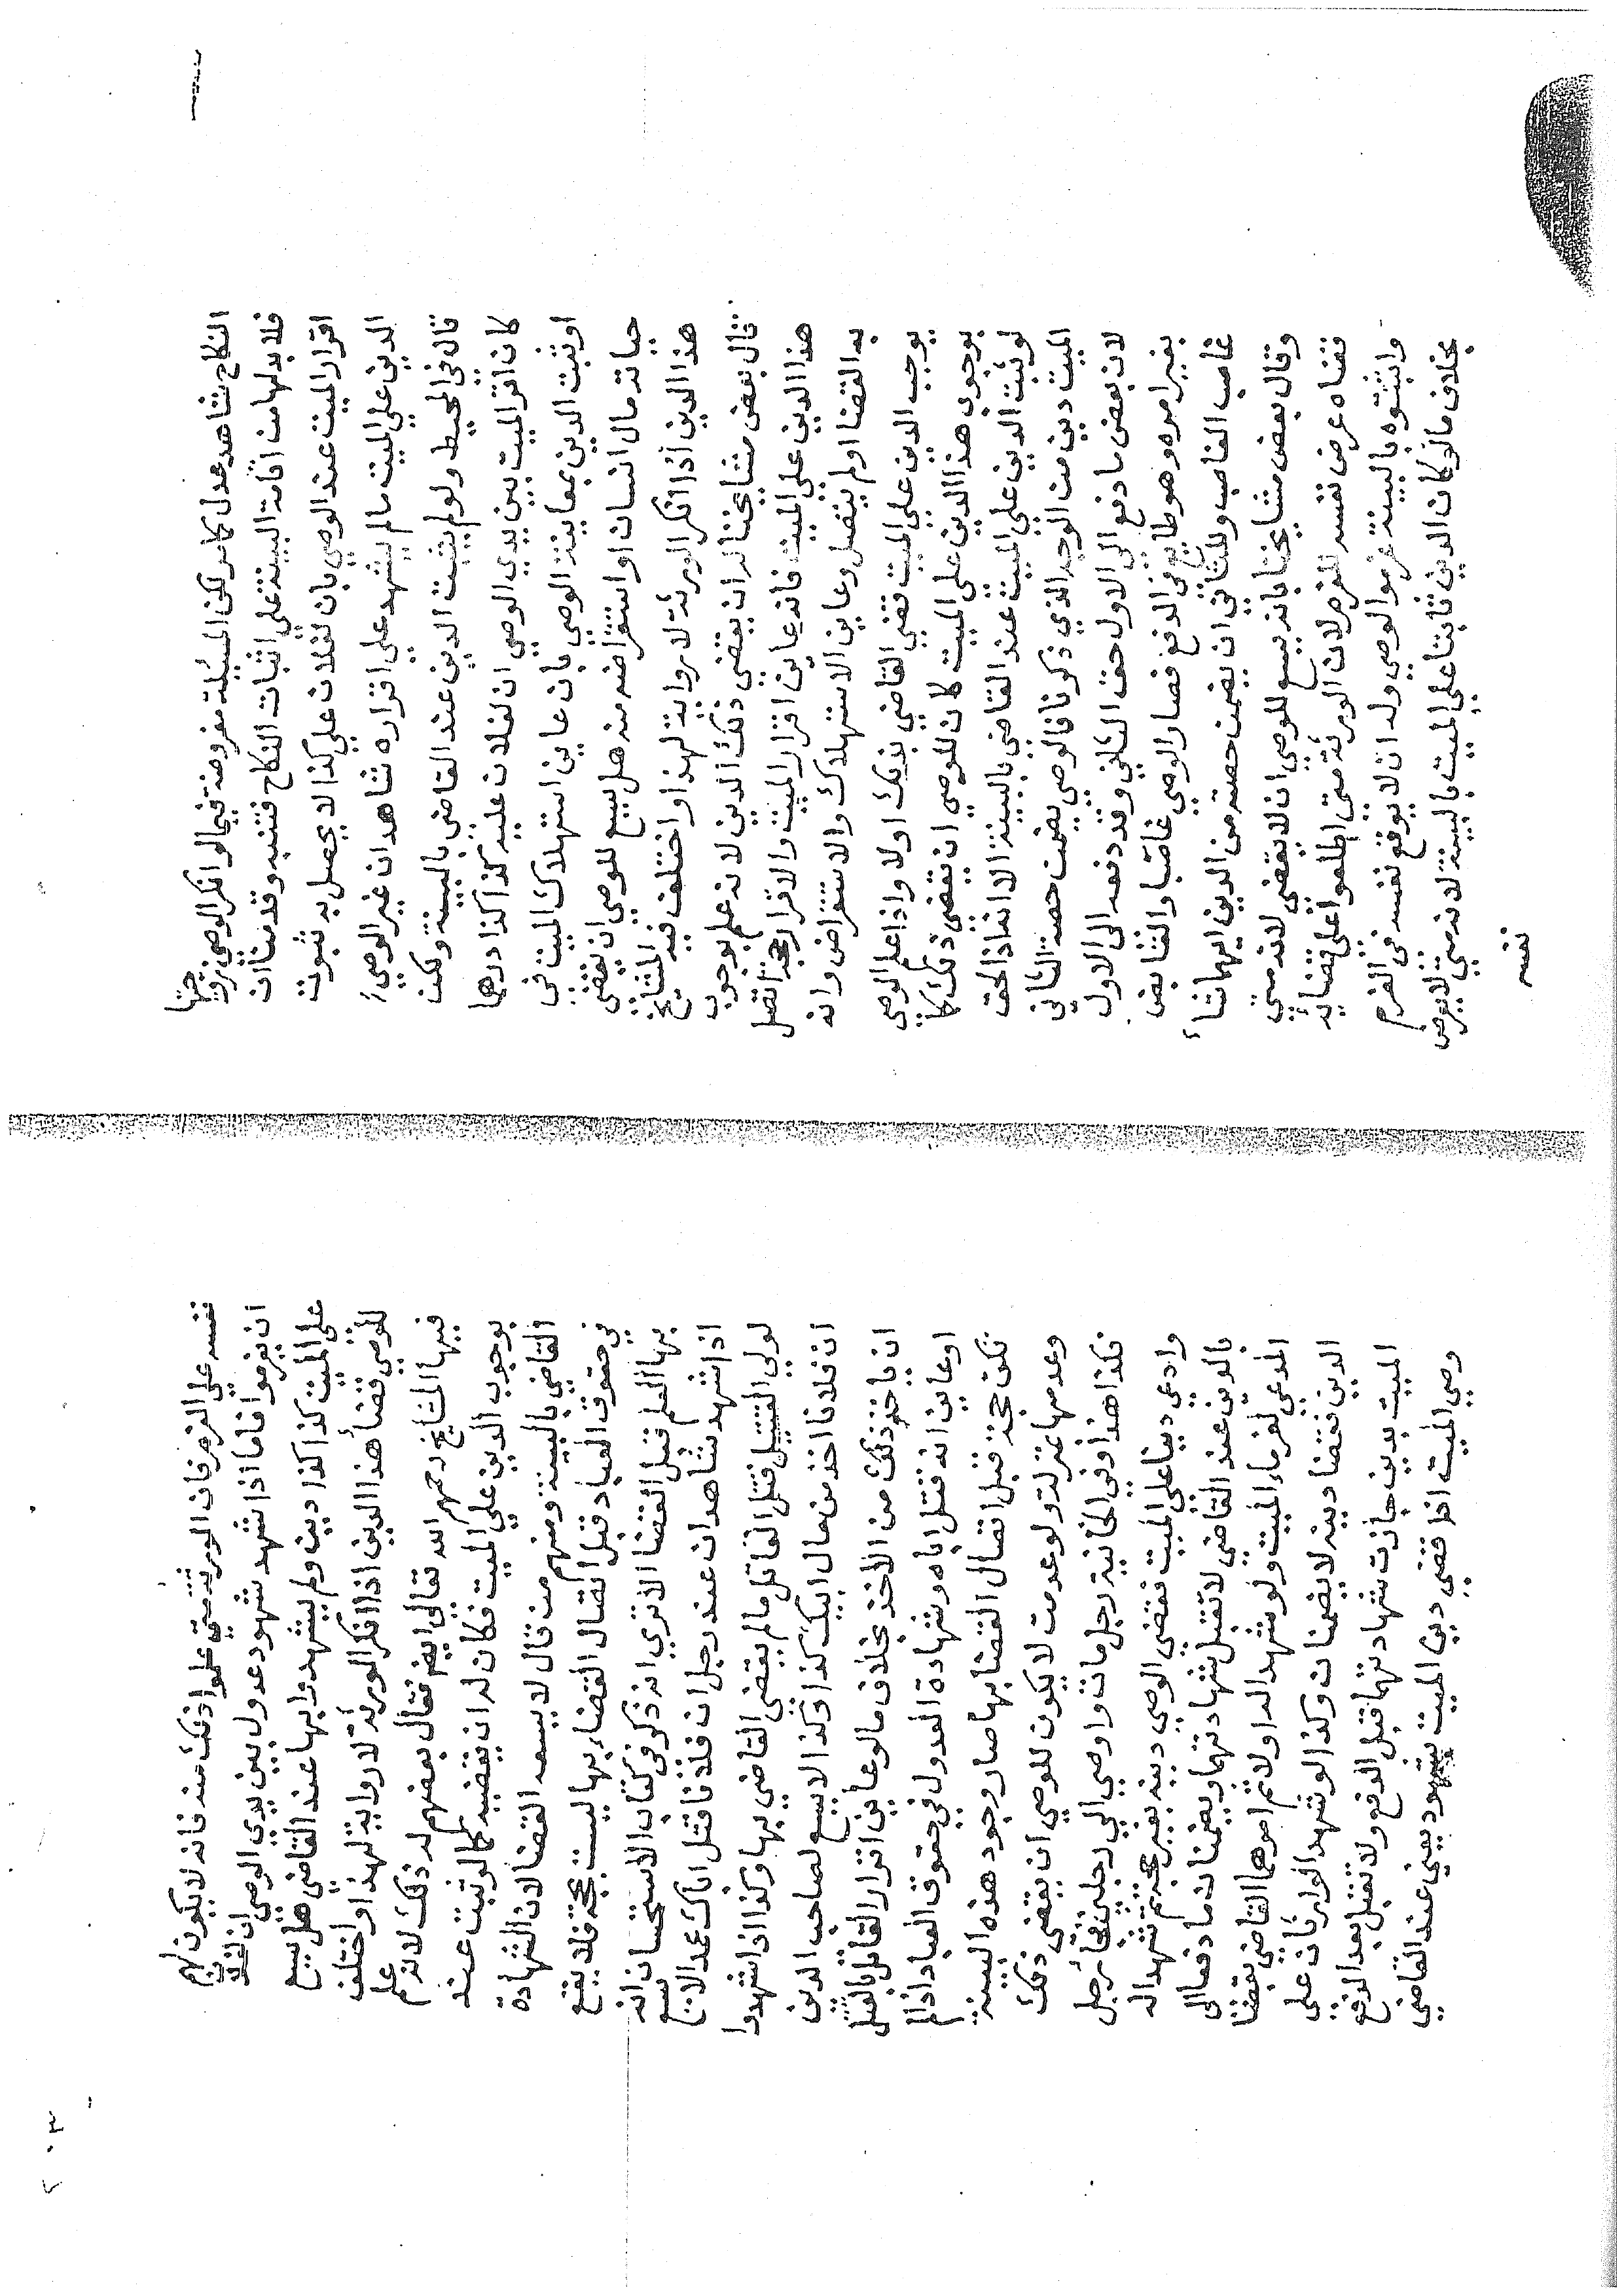 النكاح شاهد عدل كما مر لكن المسئلة مفروضة فيما لو انكر الوصي زوجيتها
فلا بد لها من اقامة البينة على اثبات النكاح فتنبه وقدمنا ان
اقرار الميت عند الوصي بان لفلان علي كذا لا يحصل به ثبوت
الدين علي الميت مالم يشهد علي اقراره شاهدان غير الوصي
قال في المحيط ولو لم يثبت الدين عند القاضي بالبينة ولكن
كان اقر الميت بين يدي الوصي ان لفلان عليه كذا كذا درهما
او ثبت الدين بمعاينة الوصي بان عاين استهلاك الميت في
حياته مال انسان او استقراضه منه هل يسع للوصي ان يقضي
هذا الدين اذا انكر الورثة لا رواية لهذا واختلف فيه المشايخ
قال بعض مشايخنا له ان يقضي ذلك الدين لانه علم بوجوب
هذا الدين علي الميت فانه عاين اقرار الميت والاقرار حجة اتصل
به القضا او لم يتصل وعاين الاستهلاك والاستقراض وانه
يوجب الدين علي الميت قضي القاضي بذلك اولا واذا علم الوصي
بوجوب هذا الدين على الميت كان للوصي ان يقضي ذلك كما
لو ثبت الدين علي الميت عند القاضي بالبينة الا اذا الحق
الميت دين من الوجه الذي ذكرنا فالوصي يضمن حصة الثاني
لان بعض ما دفع الي الاول حق الثاني وقد دفعه الى الاول
بغير امره وهو طايع في الدفع فصار الوصي غاصبا والقابض
غاصب الغاصب وللثاني ان يضمن حصته من الدين ايهما شا
وقال بعض مشايخنا بانه يسع للوصي ان لا يقضي لانه متي
قضاه عرض نفسه للغرم لان الورثة متي اطلعوا على قضايه
واثبتوه بالبينة غرموا الوصي وله ان لا يوقع نفسه في الغرم
بخلاف ما لو كان الدين ثابتا علي الميت بالبينة لانه متي لا يعرض
نفسه
نفسه علي الغرم فان الورثة متي علموا ذلك منه فانه لا يكون لهم
ان يغرموا فاما اذا شهد شهود عدول بين يدي الوصي ان لفلان
على الميت كذا كذا دين ولم يشهدوا بها عند القاضي هل يسع
للوصي قضا هذا الدين اذا انكر الورثة لا رواية لهذا واختلف
فيها المشايخ رحمهم الله تعالي ايضا فقال بعضهم له ذلك لانه علم
بوجوب الدين علي الميت فكان له ان يقضيه كما لو ثبت عند
القاضي بالبينة ومنهم من قال لا يسعه القضا لان الشهادة
في حقوق العباد قبل اتصال القضاء بها ليست بحجة فلا يقع
بها العلم قبل القضا الا تري انه ذكر في كتاب الاستحسان انه
اذا شهد شاهدان عند رجل ان فلانا قتل اباك عمدا لا يسع
لولي القتيل قتل القاتل مالم يقضي القاضي بها وكذا اذا شهدوا
ان فلانا اخذ من مال ابيك كذا وكذا لا يسع لصاحب الدين
ان ياخذ ذلك من الاخذ بخلاف مالو عاين اقرار القاتل بالقتل
او عاين انه قتل اباه وشهادة العدول في حقوق العباد اذا لم
تكن حجة قبل اتصال القضا بها صار وجود هذه البينة
وعدمها بمنزلة ولو عدمت لا يكون للوصي ان يقضي ذلك
فكذا هذا وفي الخانية رجل مات واوصي الي رجلين فجا رجل
وادعي دينا علي الميت فقضي الوصي دينه بغير حجة ثم شهدا له
بالدين عند القاضي لا تقبل شهادتهما ويضمنان ما دفعا الى
المدعي لغرماء الميت ولو شهدا له اولا ثم امرهما القاضي بقضا
الدين فقضا دينه لا يضمنان وكذا لو شهد الوارثان على
الميت بدين جازت شهادتهما قبل الدفع ولا تقبل بعد الدفع
وصي الميت اذا قضي دين الميت بشهود يعني عند القاضي